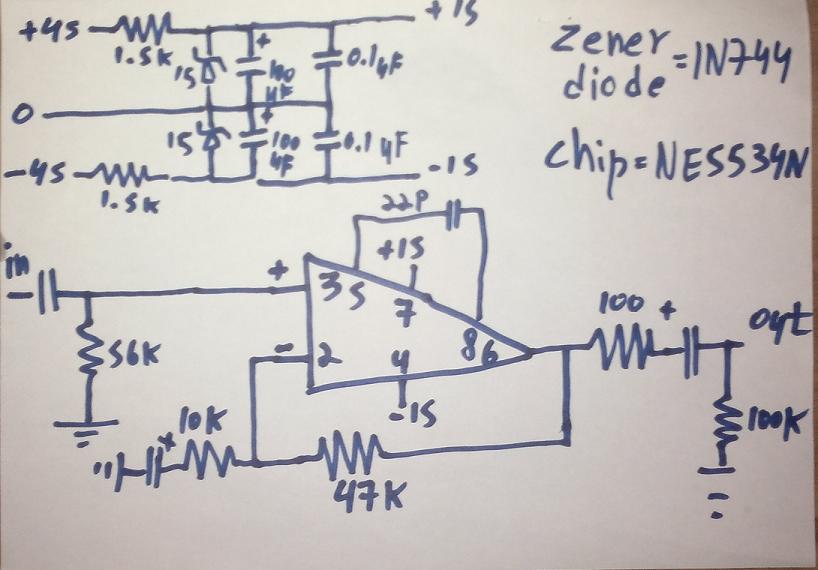 +45
1.5K
15
+
100
µF
0.1µF
+15
Zener
diode
=1N744
0
15
+
100
µF
0.1µF
chip=NE5534N
-45
1.5K
-15
22P
in
+
3
5
+15
7
8
6
100
+
out
56K
-
2
4
-15
10K
+
47K
100K